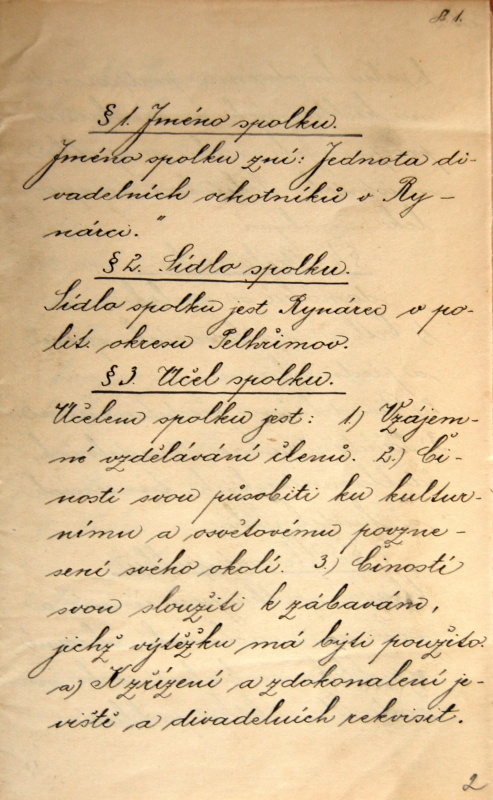 § 1. Jméno spolku.
Jméno spolku zní: Jednota di-
vadelních ochotníků v Ry-
nárci."
§ 2. Sídlo spolku.
Sídlo spolku jest Rynárec v po-
lit. okresu Pelhřimov.
§ 3. Účel spolku.
Účelem spolku jest: 1.) Vzájem-
né vzdělávání členů. 2.) Či-
ností svou působiti ku kultur-
nímu a osvětovému povzne-
sení svého okolí. 3.) Činností
svou sloužiti k zábavám,
jichž výtěžku má býti použito.
a) K zřízení a zdokonalení je-
viště a divadelních rekvisit.
2